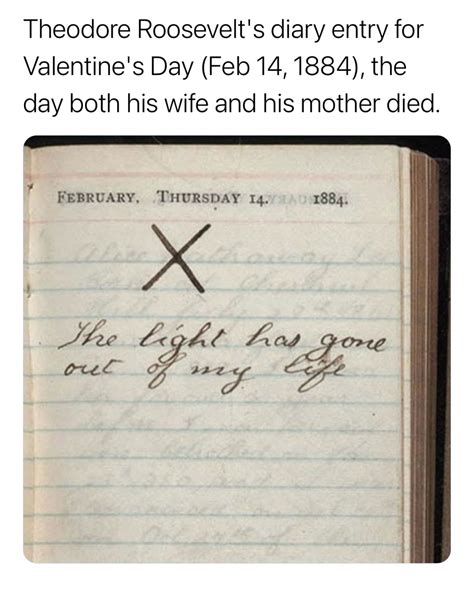 Theodore Roosevelt's diary entry for
Valentine's Day (Feb 14, 1884), the
day both his wife and his mother died.
FEBRUARY, THURSDAY 14. 1884.
X
The light has gone
out of my life